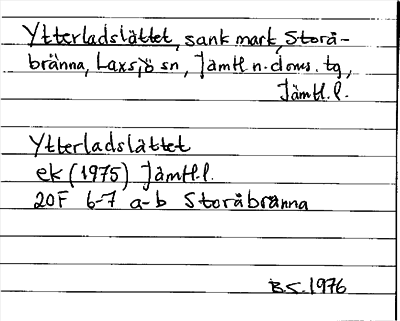 Ytterladslåttet, sank mark, Storå-
bränna, Laxsjö sn, Jämtl n. doms. tg,
Jämtl. l.
Ytterladslåttet
ek (1975) Jämtl. l.
20F 6-7 a-b Storåbränna
B.S. 1976